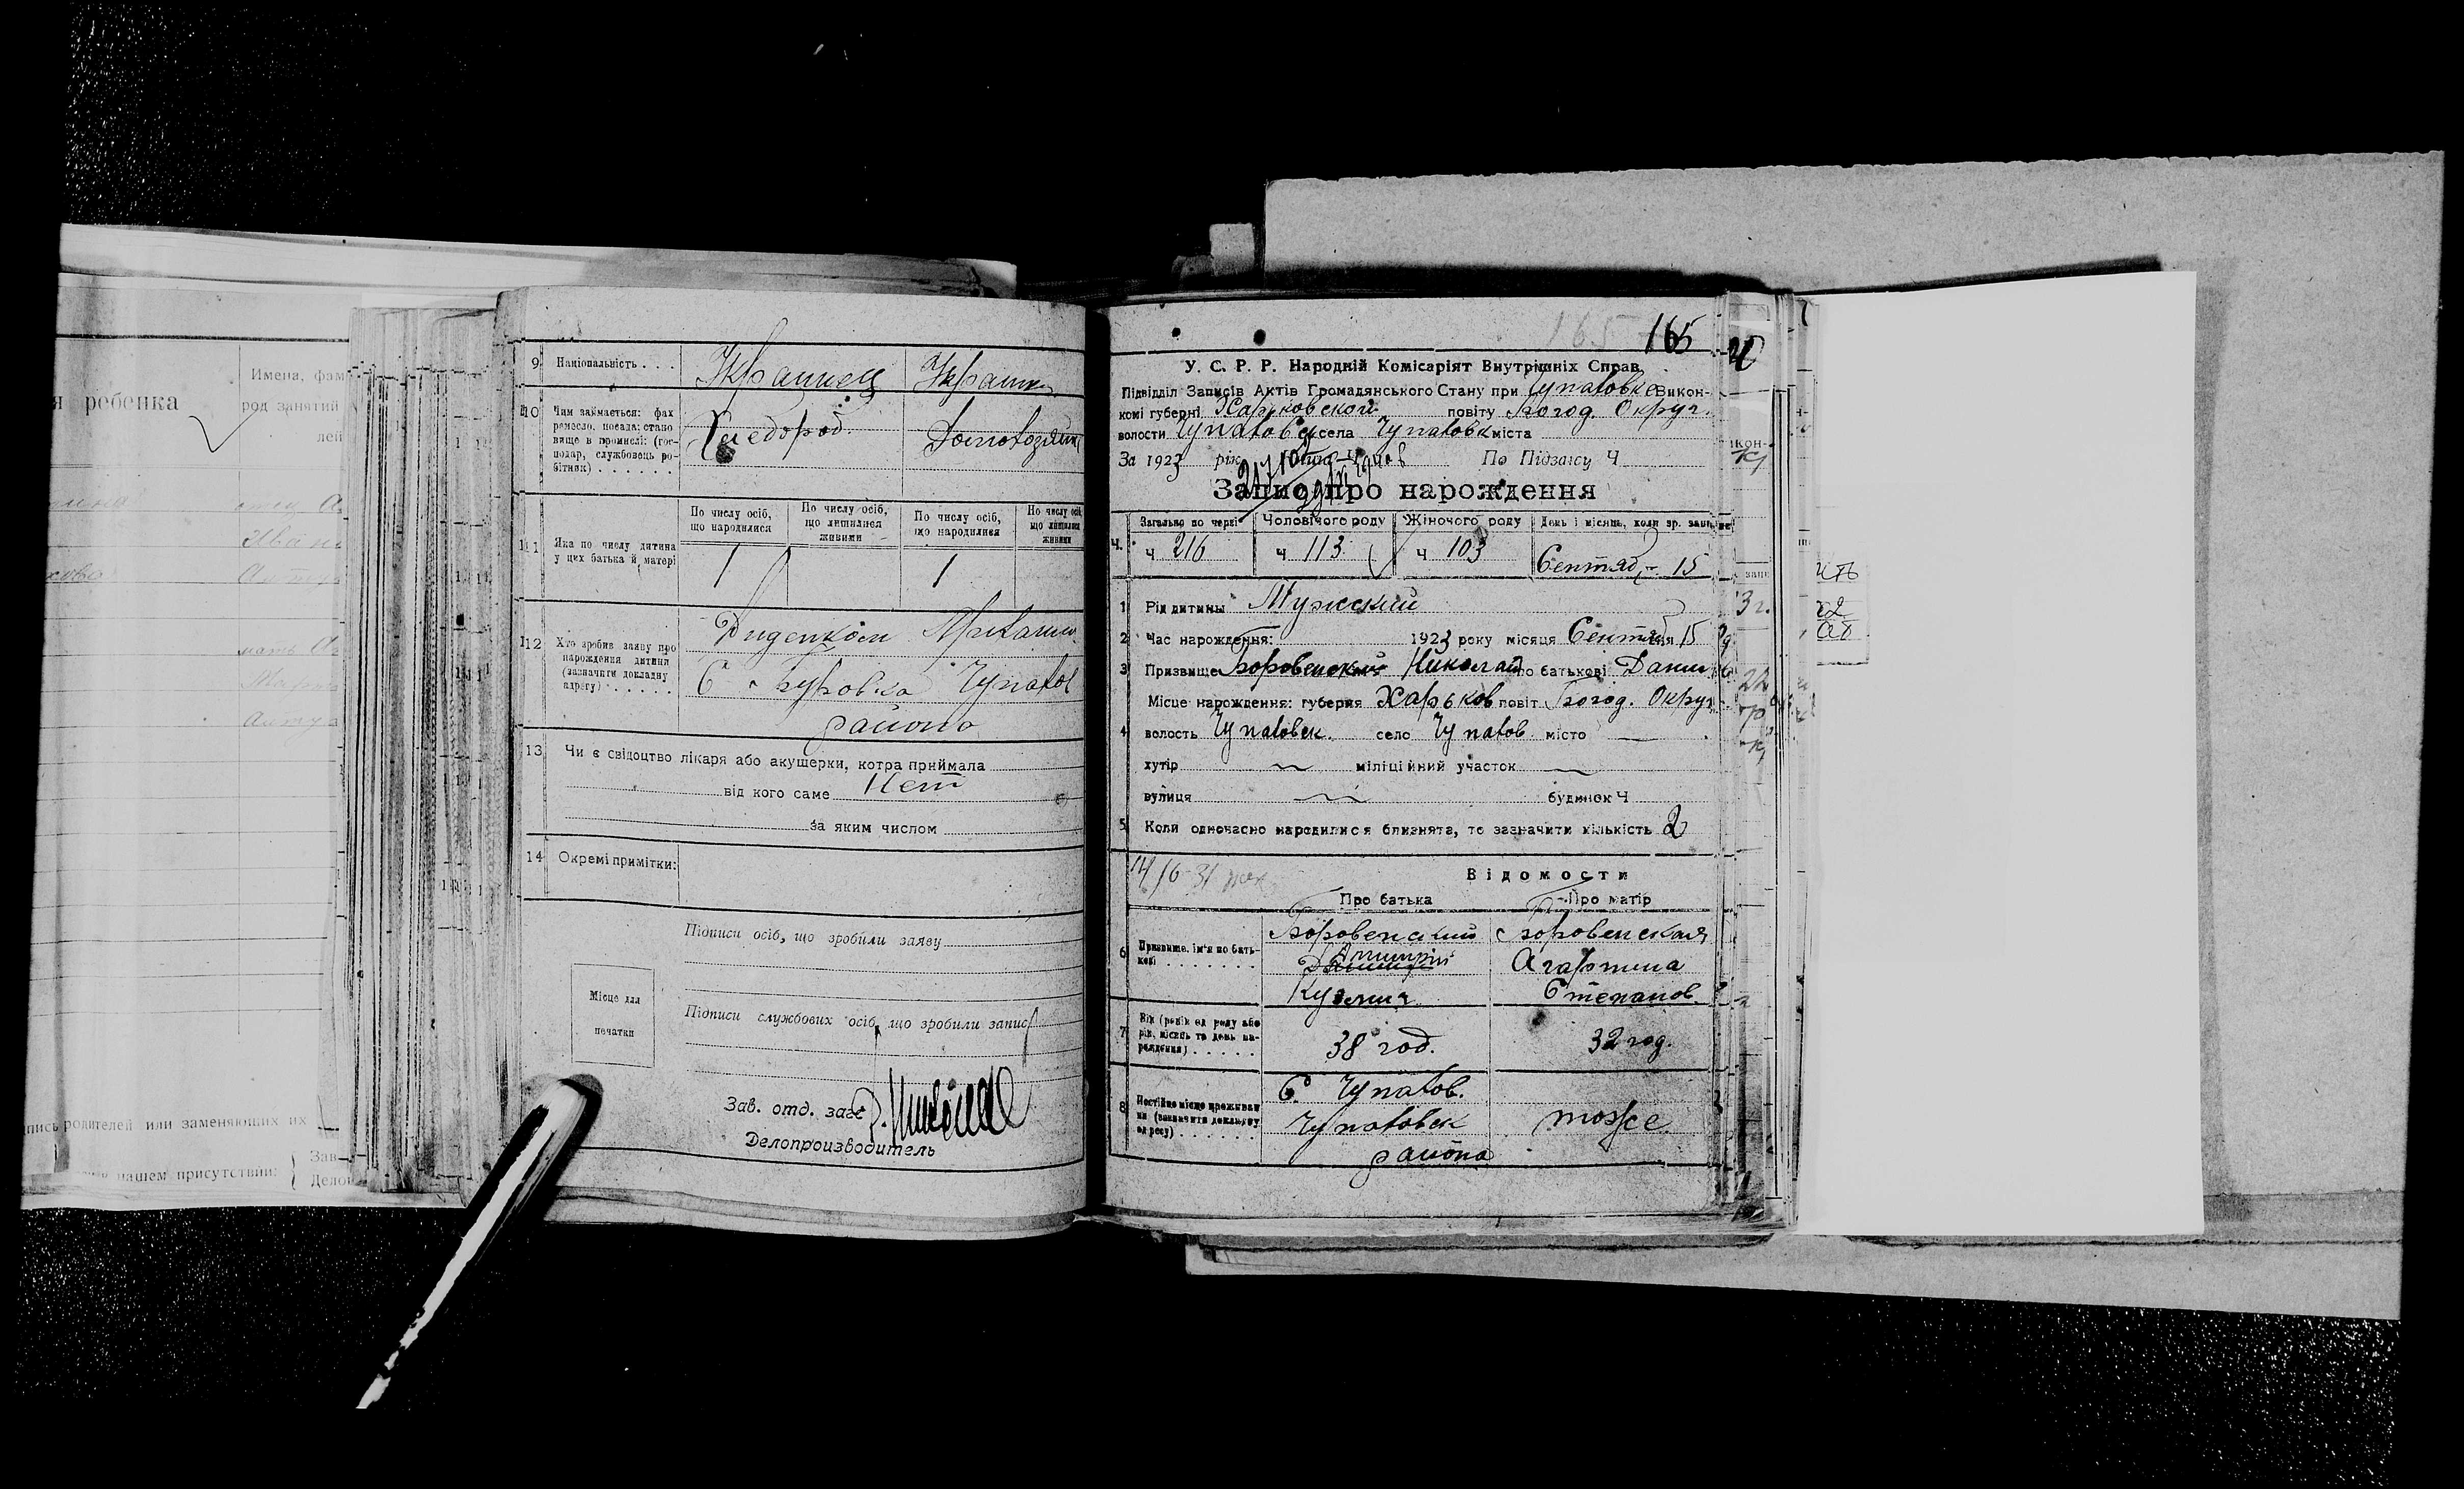 я ребенка
Имена, фам
род занятий
лей
9 Національність . . .
Украинец Украин
10 Чим займається: фах
ремесло, посада: стано
вище в промислі: (гос-
подар, службовець ро-
бітник) . . . . . .
Хлебороб. Домохозяйк
По числу осіб,
що народилися
По числу осіб,
що лишилися
живими
По числу осіб,
що народилися
По числу осіб
що лишилися
живими
11 Яка по числу дитина
у цих батька й матері
1 1
12 Хто зробив заяву про
народження дитини
(зазначити докладну
адресу) . . . . . .
С. Буровка Чупахов
района
13 Чи є свідоцтво лікаря або акушерки, котра приймала
від кого саме Нет
за яким числом
14 Окремі примітки:
Підписи осіб, що зробили заяву
Місце для
печатки
Підписи службових осіб, що зробили запис
Зав. отд. загс
Делопроизводитель
пись родителей или заменяющих их
нашем присутствии:
Зав
Дело
165 165
У. С. Р. Р. Народній Комісаріят Внутрішніх Справ.
Підвідділ Записів Актів Громадянського Стану при Чупаховке Викон-
комі губерні Харьковской повіту Богод. Округ.
волости Чупаховск села Чупаховк міста
За 1923 рік По Підзагсу Ч
Запис про народження
Загально по черзі Чоловічого роду Жіночого роду День і місяць, коли зр. запис
Ч. ч 216 ч 113 ч 103 Сентяб. 15
1 Рід дитины Мужеский
2 Час народження: 1923 року місяця Сентября 15
3 Призвище Боровенский Николай по батькові Данил
Місце народження: губерня Харьков повіт Богод. Округ
4 волость Чупаховск. село Чупахов місто —
хутір міліційний участок
вулиця будинок Ч
5 Коли одночасно народилися близнята, то зазначити кількість 2
Відомости
Про батька Про матір
6 Призвище, ім'я по бать-
кові . . . . . . . .
Боровенский Боровенская
Дмитрий Агафтина
Кузмич Степанов.
7 Вік (років од роду або
рік, місяць та день на-
родження) . . . . . .
38 год. 32 год.
8 Постійне місце проживан
ня (зазначити докладну
адресу) . . . . . . .
С. Чупахов.
Чупаховск тоже
района